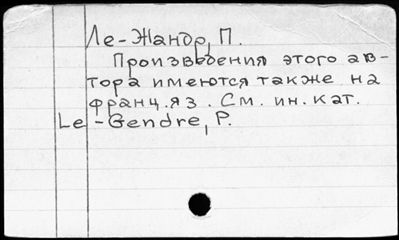 Ле-Жандр, П.
Произведения этого ав-
тора имеются также на
франц. яз. См. ин. кат.
Le-Gendre, P.